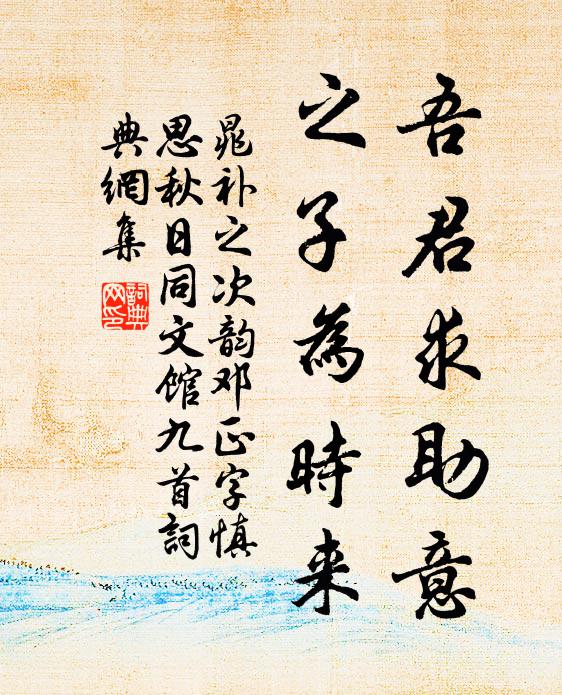 吾君求助意
之子為時来
晁补之次韵邓正字慎
思秋日同文馆九首詞
典網集
詞典
网印